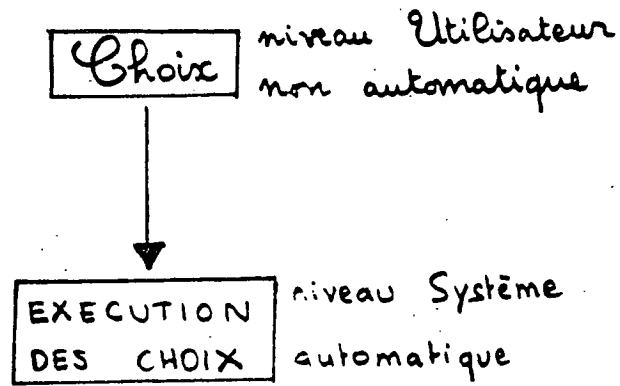 Choix
niveau Utilisateur
non automatique
EXECUTION
DES CHOIX
niveau Système
automatique